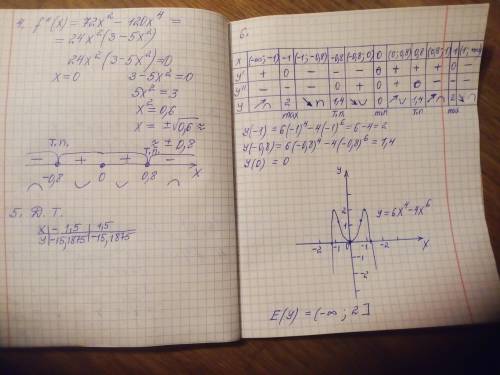 4. f''(x) = 72x² - 120x⁴ =
= 24x²(3-5x²)
24x²(3-5x²)=0
x=0 3-5x²=0
5x²=3
x²=0,6
x = ±√0,6 ≈
≈ ±0,8
т.п. т.п.
- + + -
-0,8 0 0,8 x
5. Д. Т.
x | - 1,5 | 1,5
y | -15,1875 | -15,1875
6.
x | (-∞;-1) | -1 | (-1;-0,8) | -0,8 | (-0,8;0) | 0 | (0;0,8) | 0,8 | (0,8;1) | 1 | (1;+∞)
y' | + | 0 | - | - | - | 0 | + | + | + | 0 | -
y'' | - | - | - | 0 | + | 0 | + | 0 | - | - | -
y | ↗∩ | 2 | ↘∩ | 1,4 | ↘∪ | 0 | ↗∪ | 1,4 | ↗∩ | 2 | ↘∩
max т.п. min т.п. max
y(-1) = 6(-1)⁴-4(-1)⁶=6-4=2
y(-0,8) = 6(-0,8)⁴-4(-0,8)⁶=1,4
y(0) = 0
y
2
y=6x⁴-4x⁶
1
-2 -1 0 1 2 x
-1
-2
E(y) = (-∞; 2]